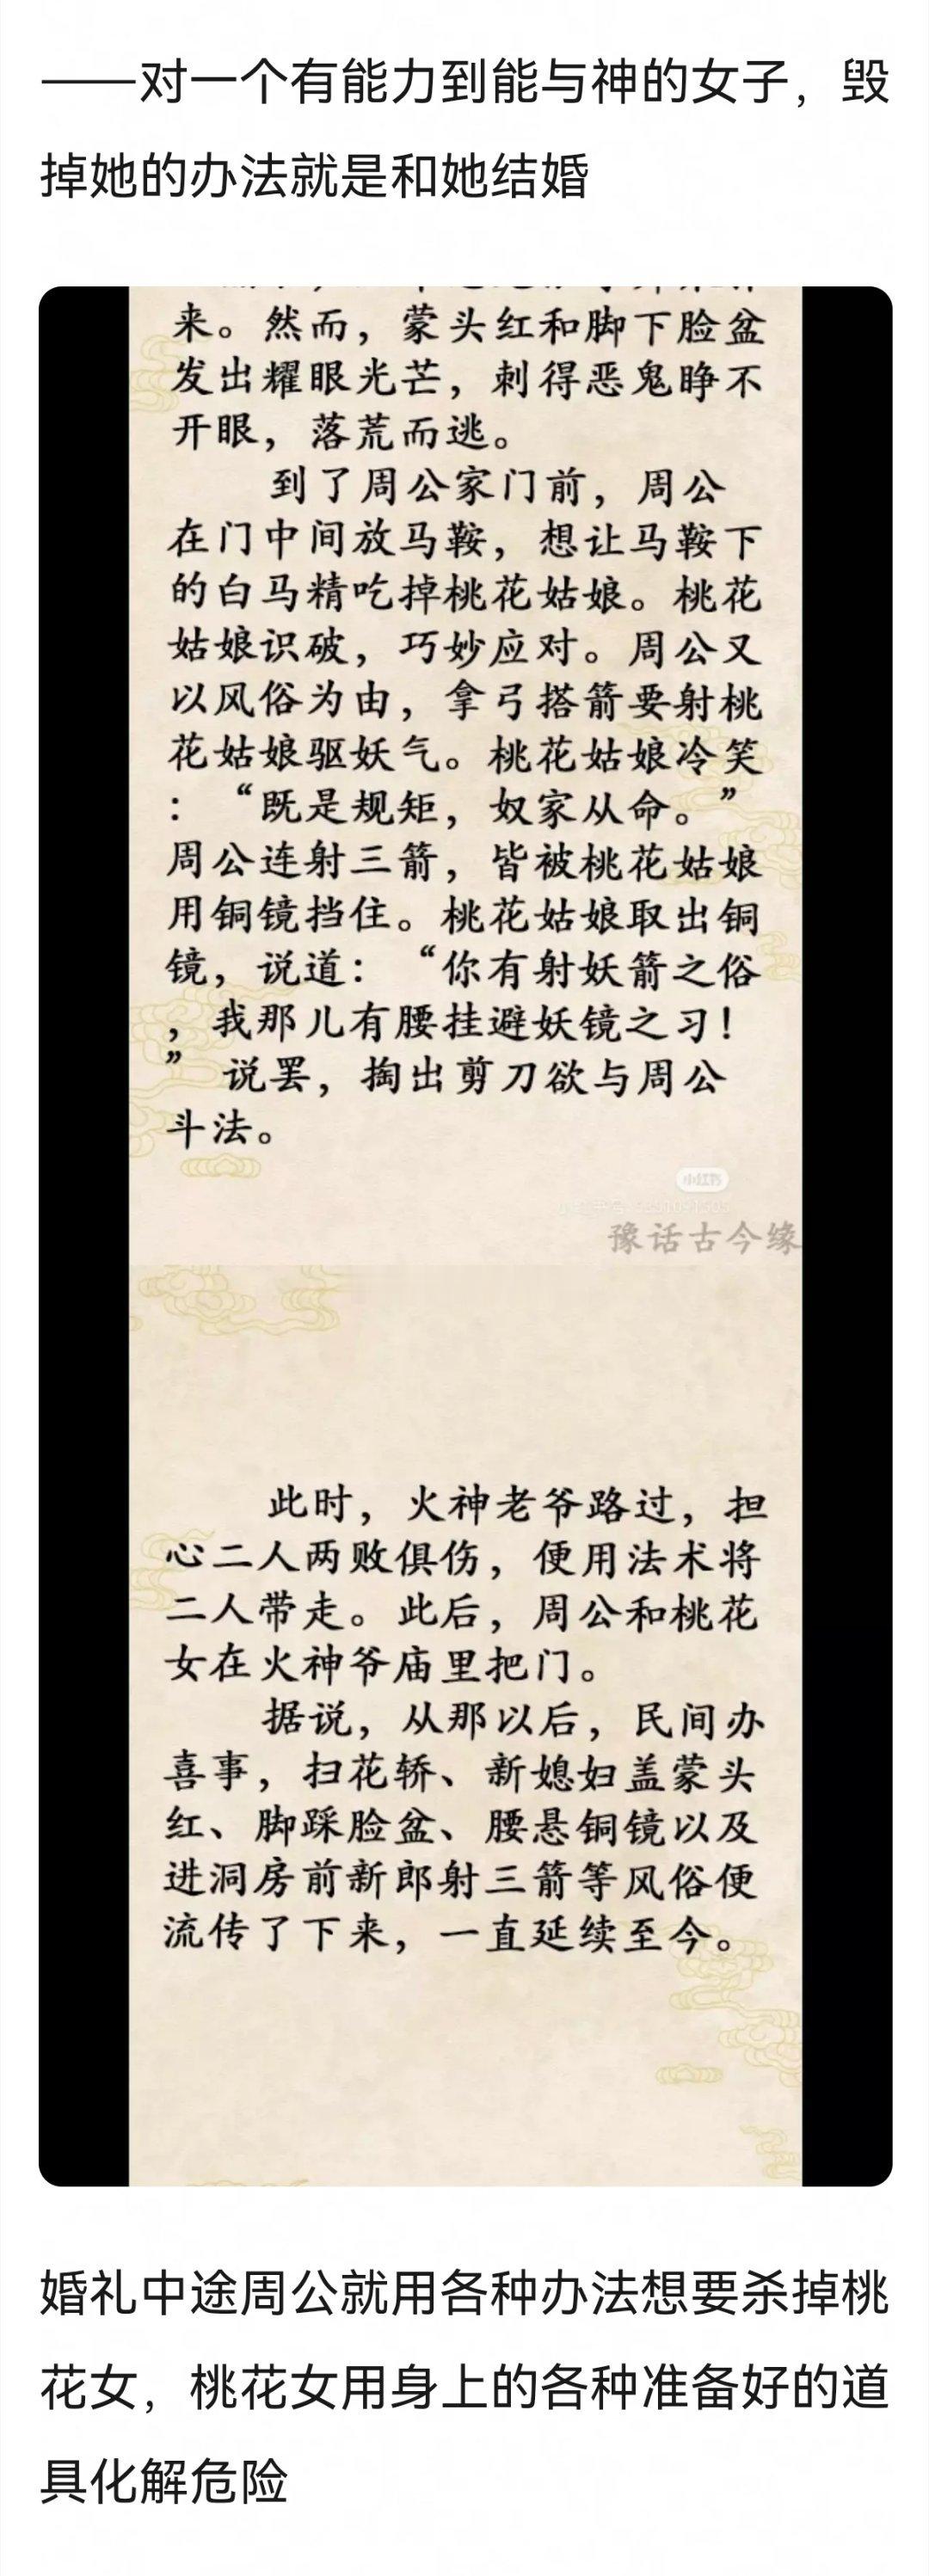 ——对一个有能力到能与神的女子，毁
掉她的办法就是和她结婚
来。然而，蒙头红和脚下脸盆
发出耀眼光芒，刺得恶鬼睁不
开眼，落荒而逃。
到了周公家门前，周公
在门中间放马鞍，想让马鞍下
的白马精吃掉桃花姑娘。桃花
姑娘识破，巧妙应对。周公又
以风俗为由，拿弓搭箭要射桃
花姑娘驱妖气。桃花姑娘冷笑
：“既是规矩，奴家从命。”
周公连射三箭，皆被桃花姑娘
用铜镜挡住。桃花姑娘取出铜
镜，说道：“你有射妖箭之俗
，我那儿有腰挂避妖镜之习！
”说罢，掏出剪刀欲与周公
斗法。
小红书
豫话古今缘
此时，火神老爷路过，担
心二人两败俱伤，便用法术将
二人带走。此后，周公和桃花
女在火神爷庙里把门。
据说，从那以后，民间办
喜事，扫花轿、新媳妇盖蒙头
红、脚踩脸盆、腰悬铜镜以及
进洞房前新郎射三箭等风俗便
流传了下来，一直延续至今。
婚礼中途周公就用各种办法想要杀掉桃
花女，桃花女用身上的各种准备好的道
具化解危险